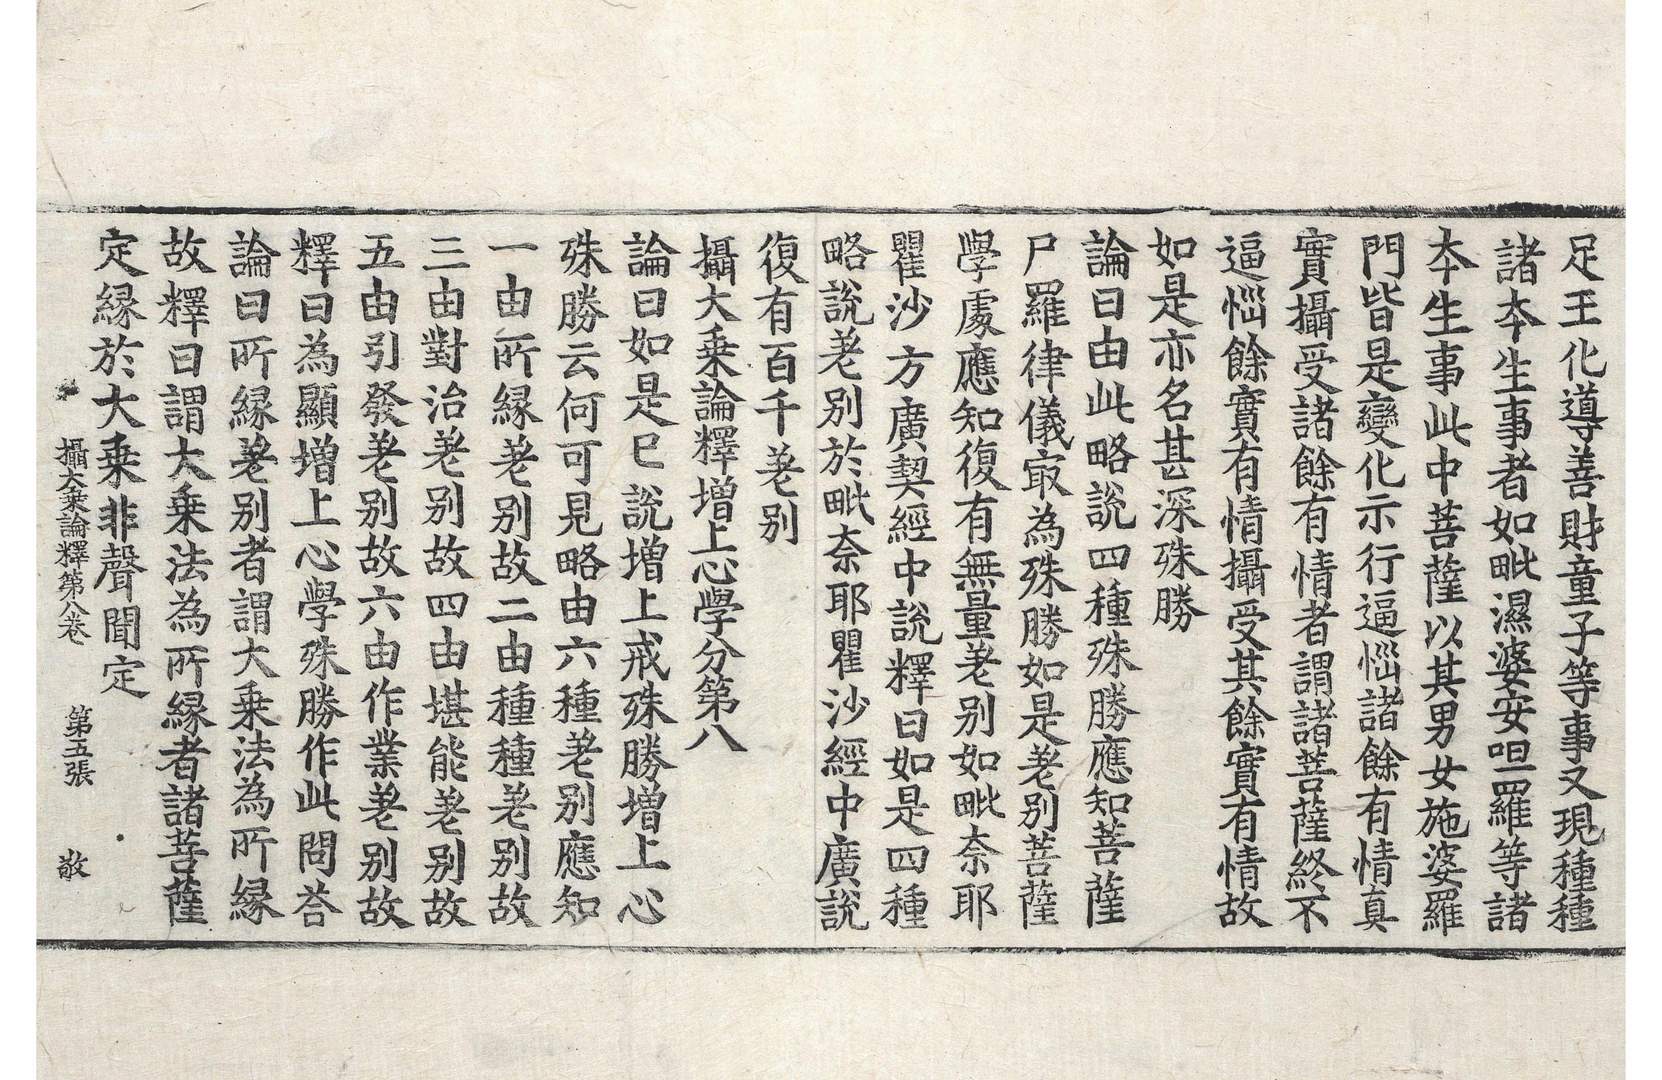 足王化導善財童子等事又現種種
諸夲生事者如毗濕婆安呾羅等諸
夲生事此中菩薩以其男女施婆羅
門皆是變化示行逼惱諸餘有情真
實攝受諸餘有情者謂諸菩薩終不
逼惱餘實有情攝受其餘實有情故
如是亦名甚深殊勝
論曰由此略說四種殊勝應知菩薩
尸羅律儀㝡為殊勝如是差別菩薩
學處應知復有無量差別如毗奈耶
瞿沙方廣契經中說釋曰如是四種
略說差別於毗奈耶瞿沙經中廣說
復有百千差別
攝大乗論釋增上心學分第八
論曰如是已說增上戒殊勝增上心
殊勝云何可見略由六種差別應知
一由所縁差別故二由種種差別故
三由對治差別故四由堪能差別故
五由引發差別故六由作業差別故
釋曰為顯增上心學殊勝作此問荅
論曰所縁差別者謂大乗法為所縁
故釋曰謂大乗法為所縁者諸菩薩
定縁於大乗非聲聞定
攝大乗論釋第八卷 第五張 敬